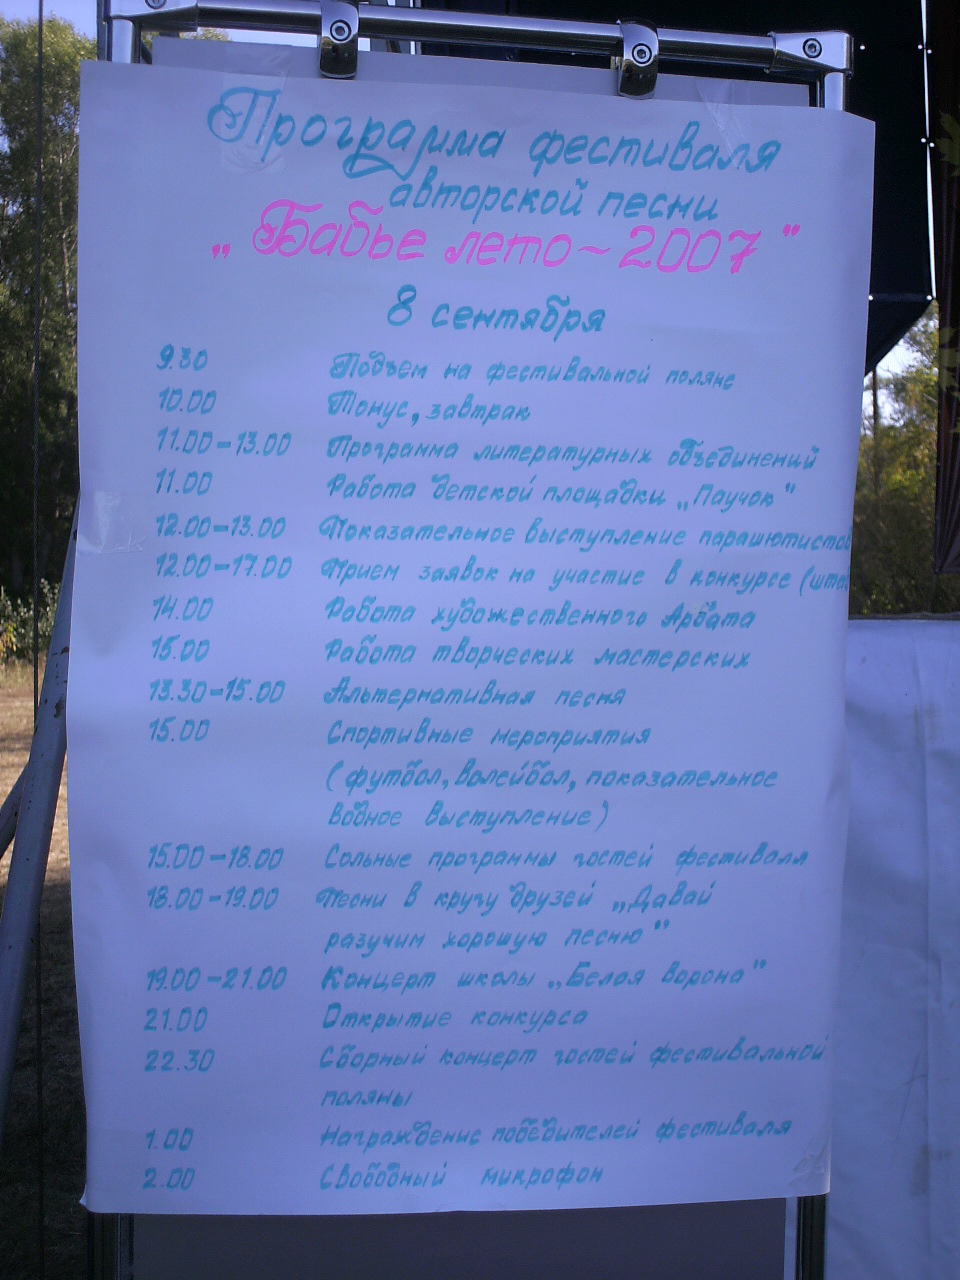 Программа фестиваля
авторской песни
„Бабье лето ~ 2007"
8 сентября
9.30 Подъем на фестивальной поляне
10.00 Тонус, завтрак
11.00-13.00 Программа литературных объединений
11.00 Работа детской площадки „Паучок"
12.00-13.00 Показательное выступление парашютистов
12.00-17.00 Прием заявок на участие в конкурсе (штаб
14.00 Работа художественного Арбата
15.00 Работа творческих мастерских
13.30-15.00 Альтернативная песня
15.00 Спортивные мероприятия
(футбол, волейбол, показательное
водное выступление)
15.00-18.00 Сольные программы гостей фестиваля
18.00-19.00 Песни в кругу друзей „Давай
разучим хорошую песню"
19.00-21.00 Концерт школы „Белая ворона"
21.00 Открытие конкурса
22.30 Сборный концерт гостей фестивальной
поляны
1.00 Награждение победителей фестиваля
2.00 Свободный микрофон